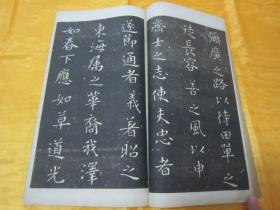 彌廣之路以待田單之
徒長容善之風以申
齊士之志使夫忠者
遂節通者義著昭之
東海属之華裔我澤
如春下應如草道光